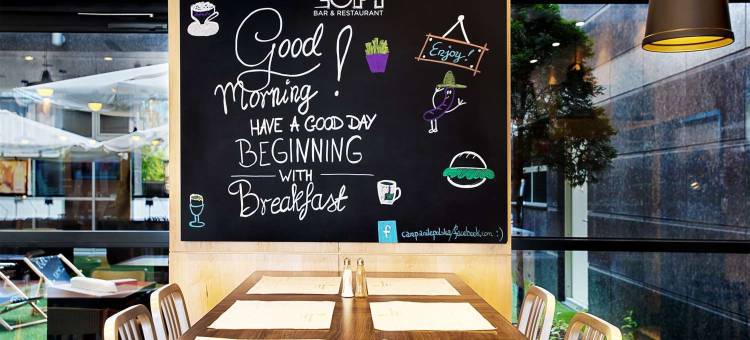 LOFT
BAR & RESTAURANT
Good
Morning!
Enjoy!
HAVE A GOOD DAY
BEGINNING
WITH
Breakfast
f campanilepolska/facebook.com :)